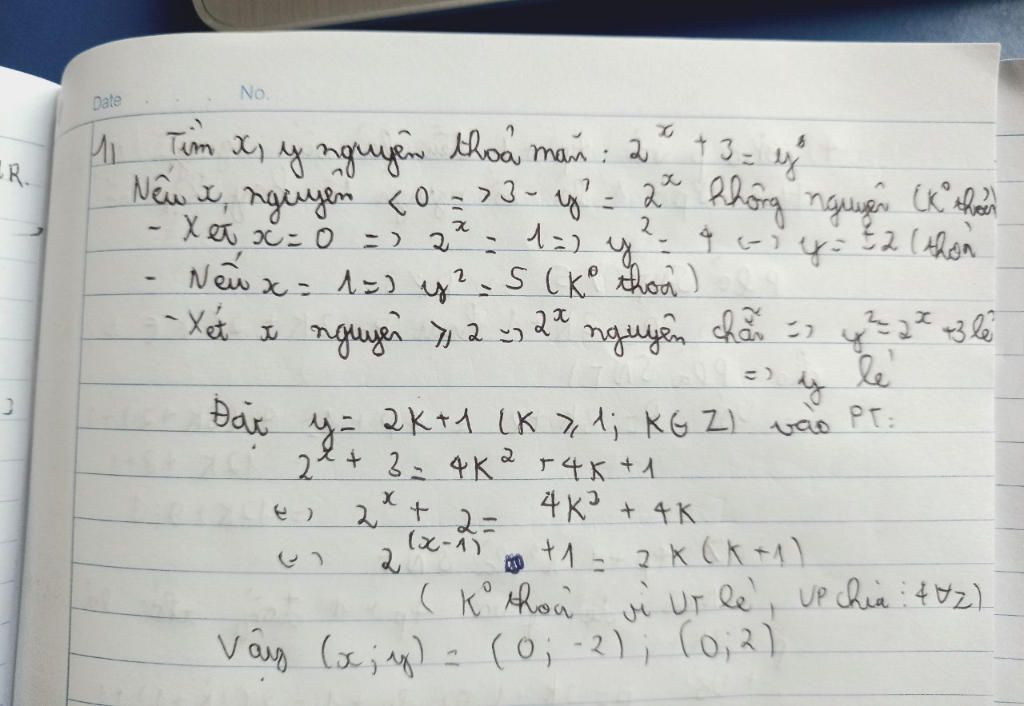 Date No.
R.
1, Tìm x, y nguyên thoả mãn: 2^x + 3 = y²
Nếu x, nguyên < 0 => 3 - y² = 2^x không nguyên (K° thoả)
- Xét x = 0 => 2^x = 1 => y² = 4 <-> y = ±2 (thoả
- Nếu x = 1 => y² = 5 (K° thoả)
- Xét x nguyên ⩾ 2 => 2^x nguyên chẵn => y² = 2^x + 3 lẻ
=> y lẻ
Đặt y = 2K+1 (K ⩾ 1; K ∈ Z) vào PT:
2^x + 3 = 4K² + 4K + 1
<-> 2^x + 2 = 4K² + 4K
<-> 2^(x-1) + 1 = 2K(K+1)
(K° thoả vì VT lẻ, VP chia : 4 ∀Z)
Vậy (x; y) = (0; -2); (0; 2)